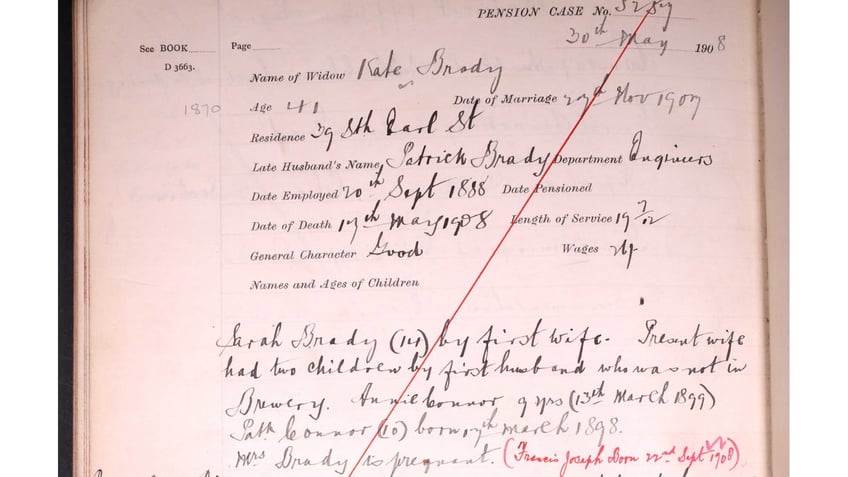 PENSION CASE No.
30th May 1908
See BOOK Page
D 3663.
Name of Widow Kate Brady
1870
Age 41 Date of Marriage 27th Nov 1907
Residence 39 Sth Earl St
Late Husband's Name Patrick Brady Department Engineers
Date Employed 20th Sept 1888 Date Pensioned
Date of Death 17th May 1908 Length of Service 19 7/12
General Character Good Wages
Names and Ages of Children
Sarah Brady (14) by first wife. Present wife
had two children by first husband who was not in
Brewery. Annie Connor 9 yrs (13th March 1899)
Patk Connor (10) born 17th March 1898.
Mrs Brady is pregnant. (Francis Joseph Born 22nd Sept 1908)